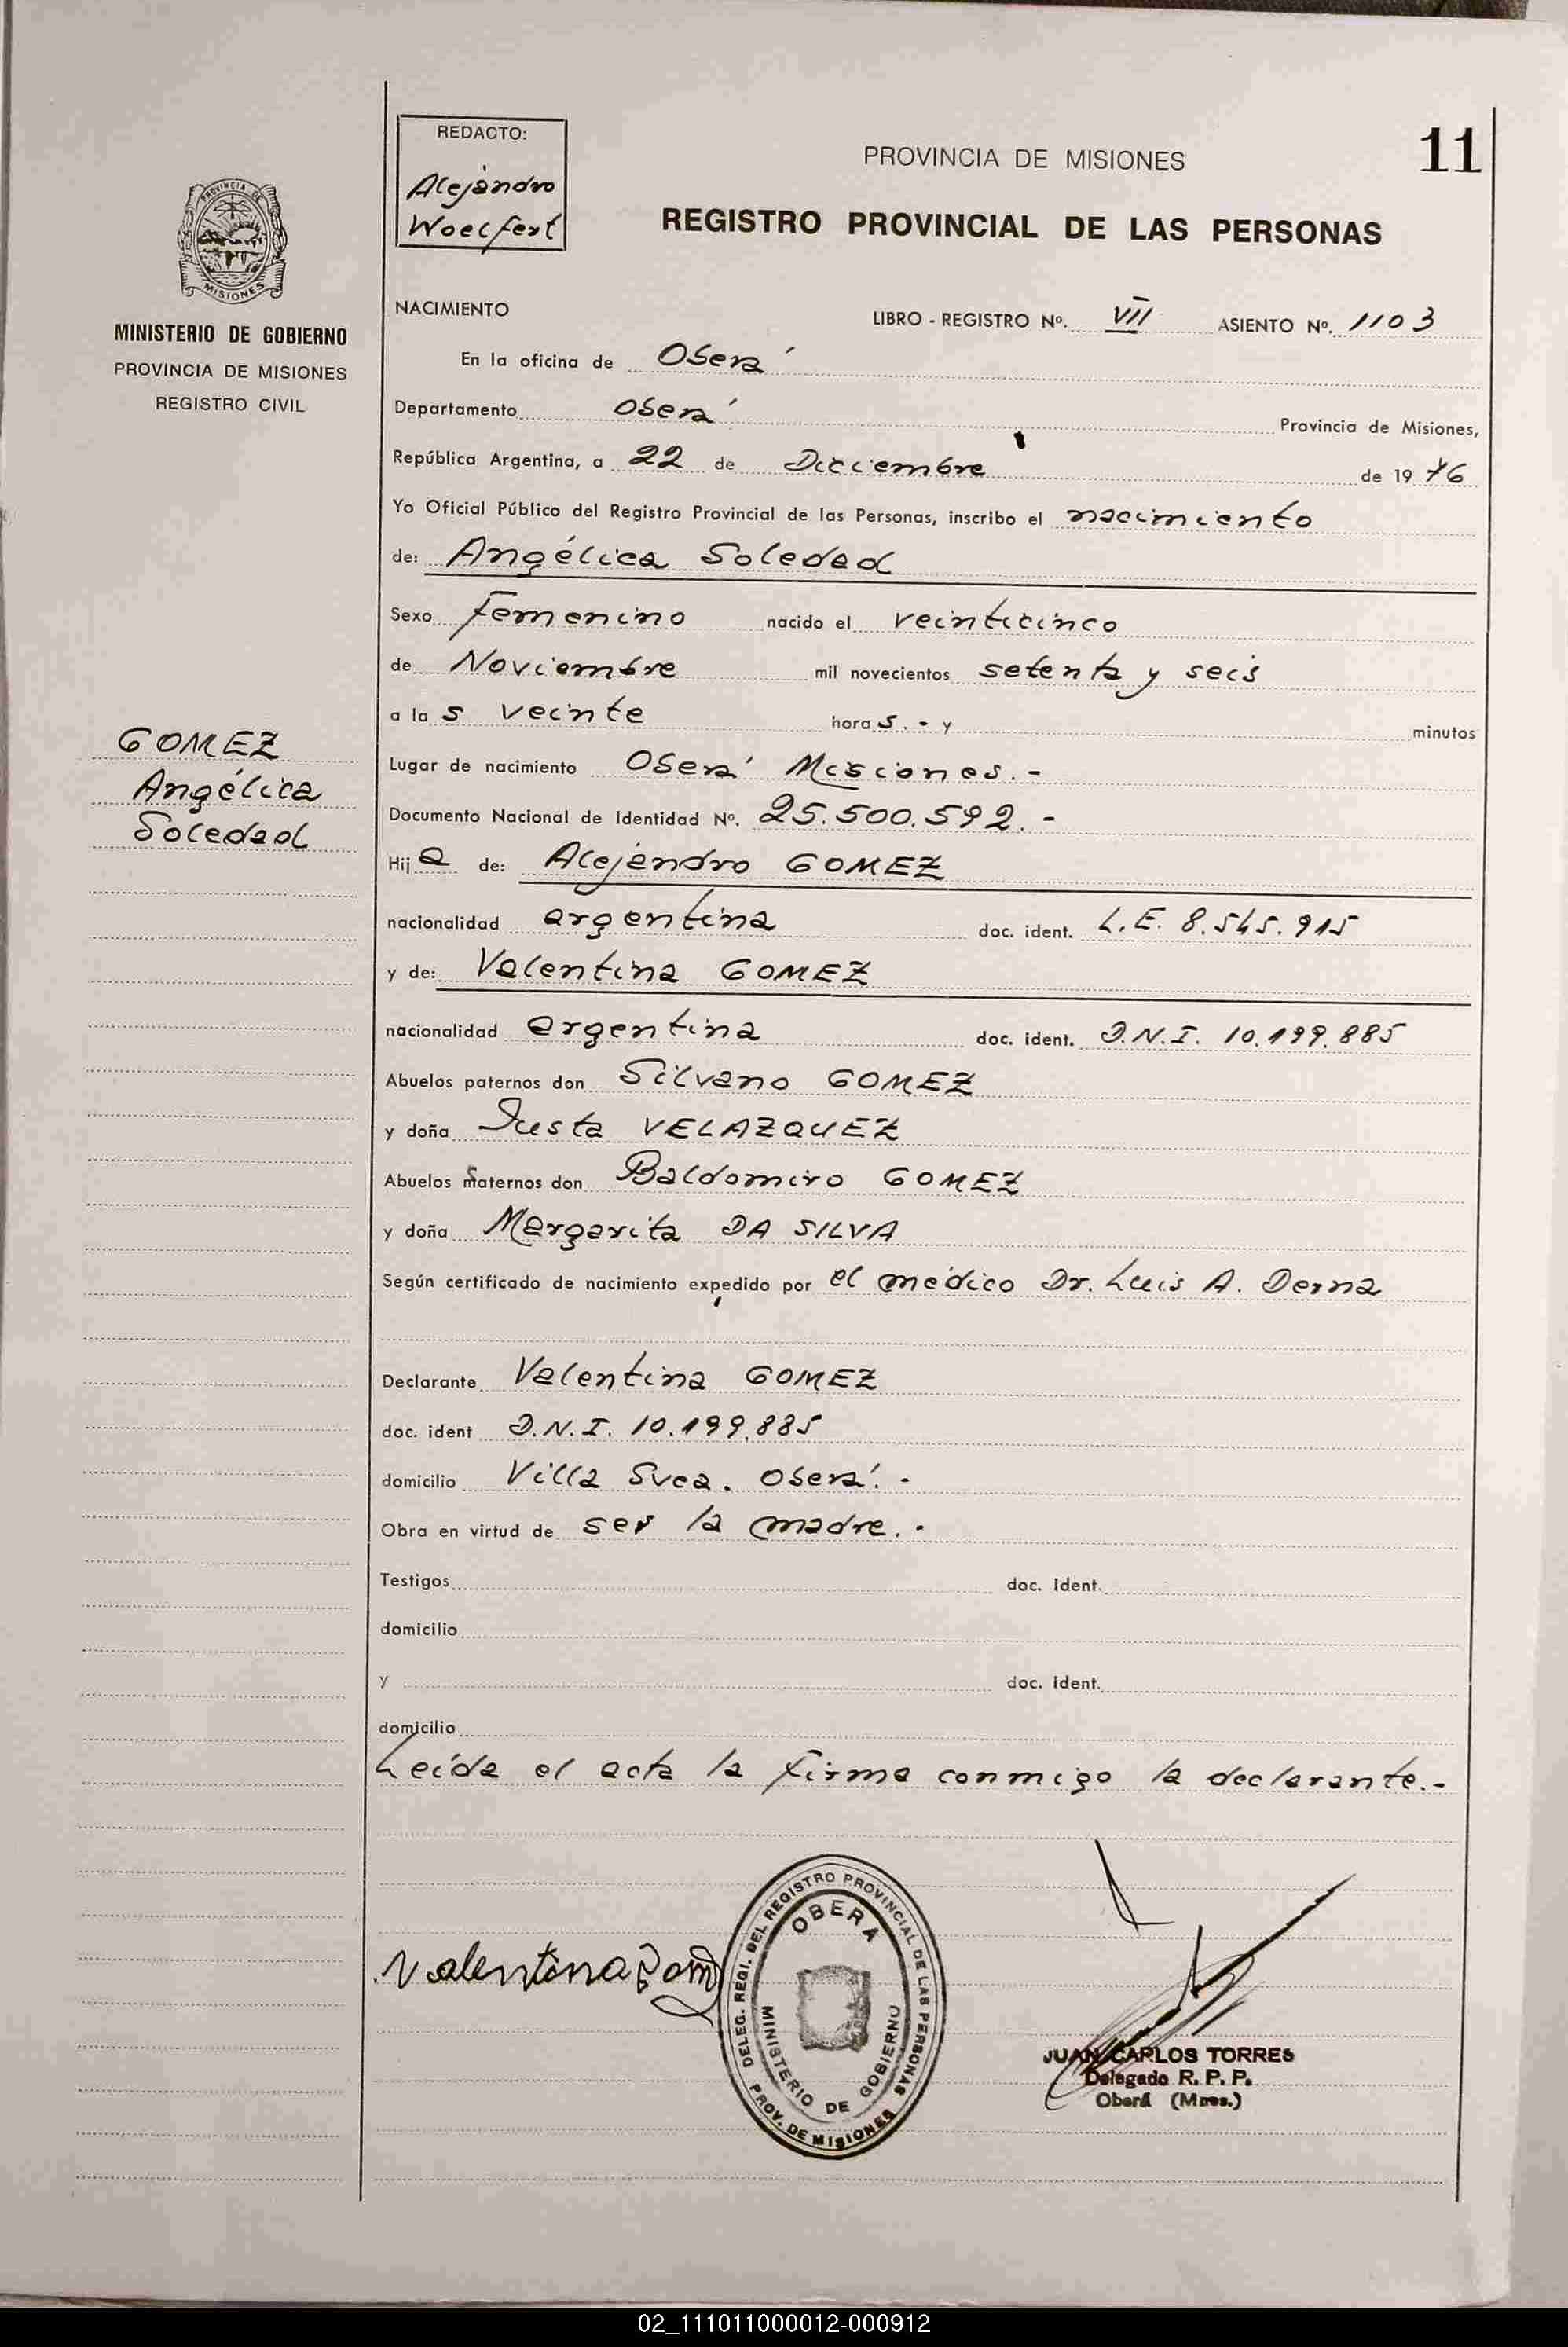 11
REDACTO:
Alejandro
Woelfert
PROVINCIA DE MISIONES
REGISTRO PROVINCIAL DE LAS PERSONAS
PROVINCIA DE
MISIONES
MINISTERIO DE GOBIERNO
PROVINCIA DE MISIONES
REGISTRO CIVIL
NACIMIENTO LIBRO - REGISTRO Nº. VII ASIENTO Nº. 1103
En la oficina de Oberá
Departamento Oberá Provincia de Misiones,
República Argentina, a 22 de Diciembre de 19 76
Yo Oficial Público del Registro Provincial de las Personas, inscribo el nacimiento
de: Angélica Soledad
Sexo femenino nacido el veinticinco
de Noviembre mil novecientos setenta y seis
a la s veinte hora s. - y minutos
GOMEZ
Angélica
Soledad
Lugar de nacimiento Oberá Misiones. -
Documento Nacional de Identidad Nº. 25.500.592. -
Hij a de: Alejandro GOMEZ
nacionalidad argentina doc. ident. L.E. 8.545.915
y de: Valentina GOMEZ
nacionalidad argentina doc. ident. D.N.I. 10.199.885
Abuelos paternos don Silvano GOMEZ
y doña Justa VELAZQUEZ
Abuelos maternos don Baldomiro GOMEZ
y doña Margarita DA SILVA
Según certificado de nacimiento expedido por el médico Dr. Luis A. Derna
Declarante Valentina GOMEZ
doc. ident D.N.I. 10.199.885
domicilio Villa Svea. Oberá. -
Obra en virtud de ser la madre. -
Testigos doc. Ident.
domicilio
y doc. Ident.
domicilio
Leída el acta la firma conmigo la declarante. -
Valentina Gom
DELEG. REGI. DEL REGISTRO PROVINCIAL DE LAS PERSONAS
OBERA
MINISTERIO DE GOBIERNO
PROV. DE MISIONES
JUAN CARLOS TORRES
Delegado R. P. P.
Oberá (Mnes.)
02_111011000012-000912